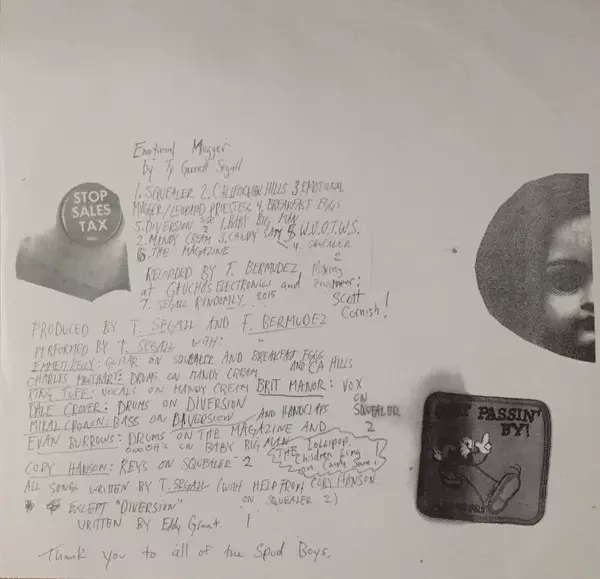 Emotional Mugger
by Ty Garrett Segall
1. SQUEALER 2. CALIFORNIAN HILLS 3. EMOTIONAL
MUGGER/LEOPARD PRIESTESS 4. BREAKFAST EGGS
5. DIVERSION 1. BABY BIG MAN
2. MANDY CREAM 3. CANDY SAM 5. W.U.O.T.W.S.
6. THE MAGAZINE 4. SQUEALER 2
RECORDED BY F. BERMUDEZ
at GAUCHOS ELECTRONICS and
T. SEGALL RANDOMLY. 2015
Mixing
engineer:
Scott
Cornish!
STOP
SALES
TAX
PRODUCED BY T. SEGALL AND F. BERMUDEZ
PERFORMED BY T. SEGALL WITH:
EMMETT KELLY: GUITAR ON SQUEALER AND BREAKFAST EGGS
AND CA HILLS
CHARLES MOOTHART: DRUMS ON MANDY CREAM
KING TUFF: VOCALS ON MANDY CREAM BRIT MANOR: VOX
ON SQUEALER 2
DALE CROVER: DRUMS ON DIVERSION
MIKAL CRONIN: BASS ON DIVERSION AND HANDCLAPS
EVAN BURROWS: DRUMS ON THE MAGAZINE AND
OOOOH'S ON BABY BIG MAN
THE Lollipop
Children Sing
on Candy Sam!
CORY HANSON: KEYS ON SQUEALER 2
ALL SONGS WRITTEN BY T. SEGALL (WITH HELP FROM CORY HANSON
ON SQUEALER 2)
EXCEPT "DIVERSION"
WRITTEN BY Eddy Grant. !
Thank you to all of the Spud Boys.
JUST PASSIN'
BY!